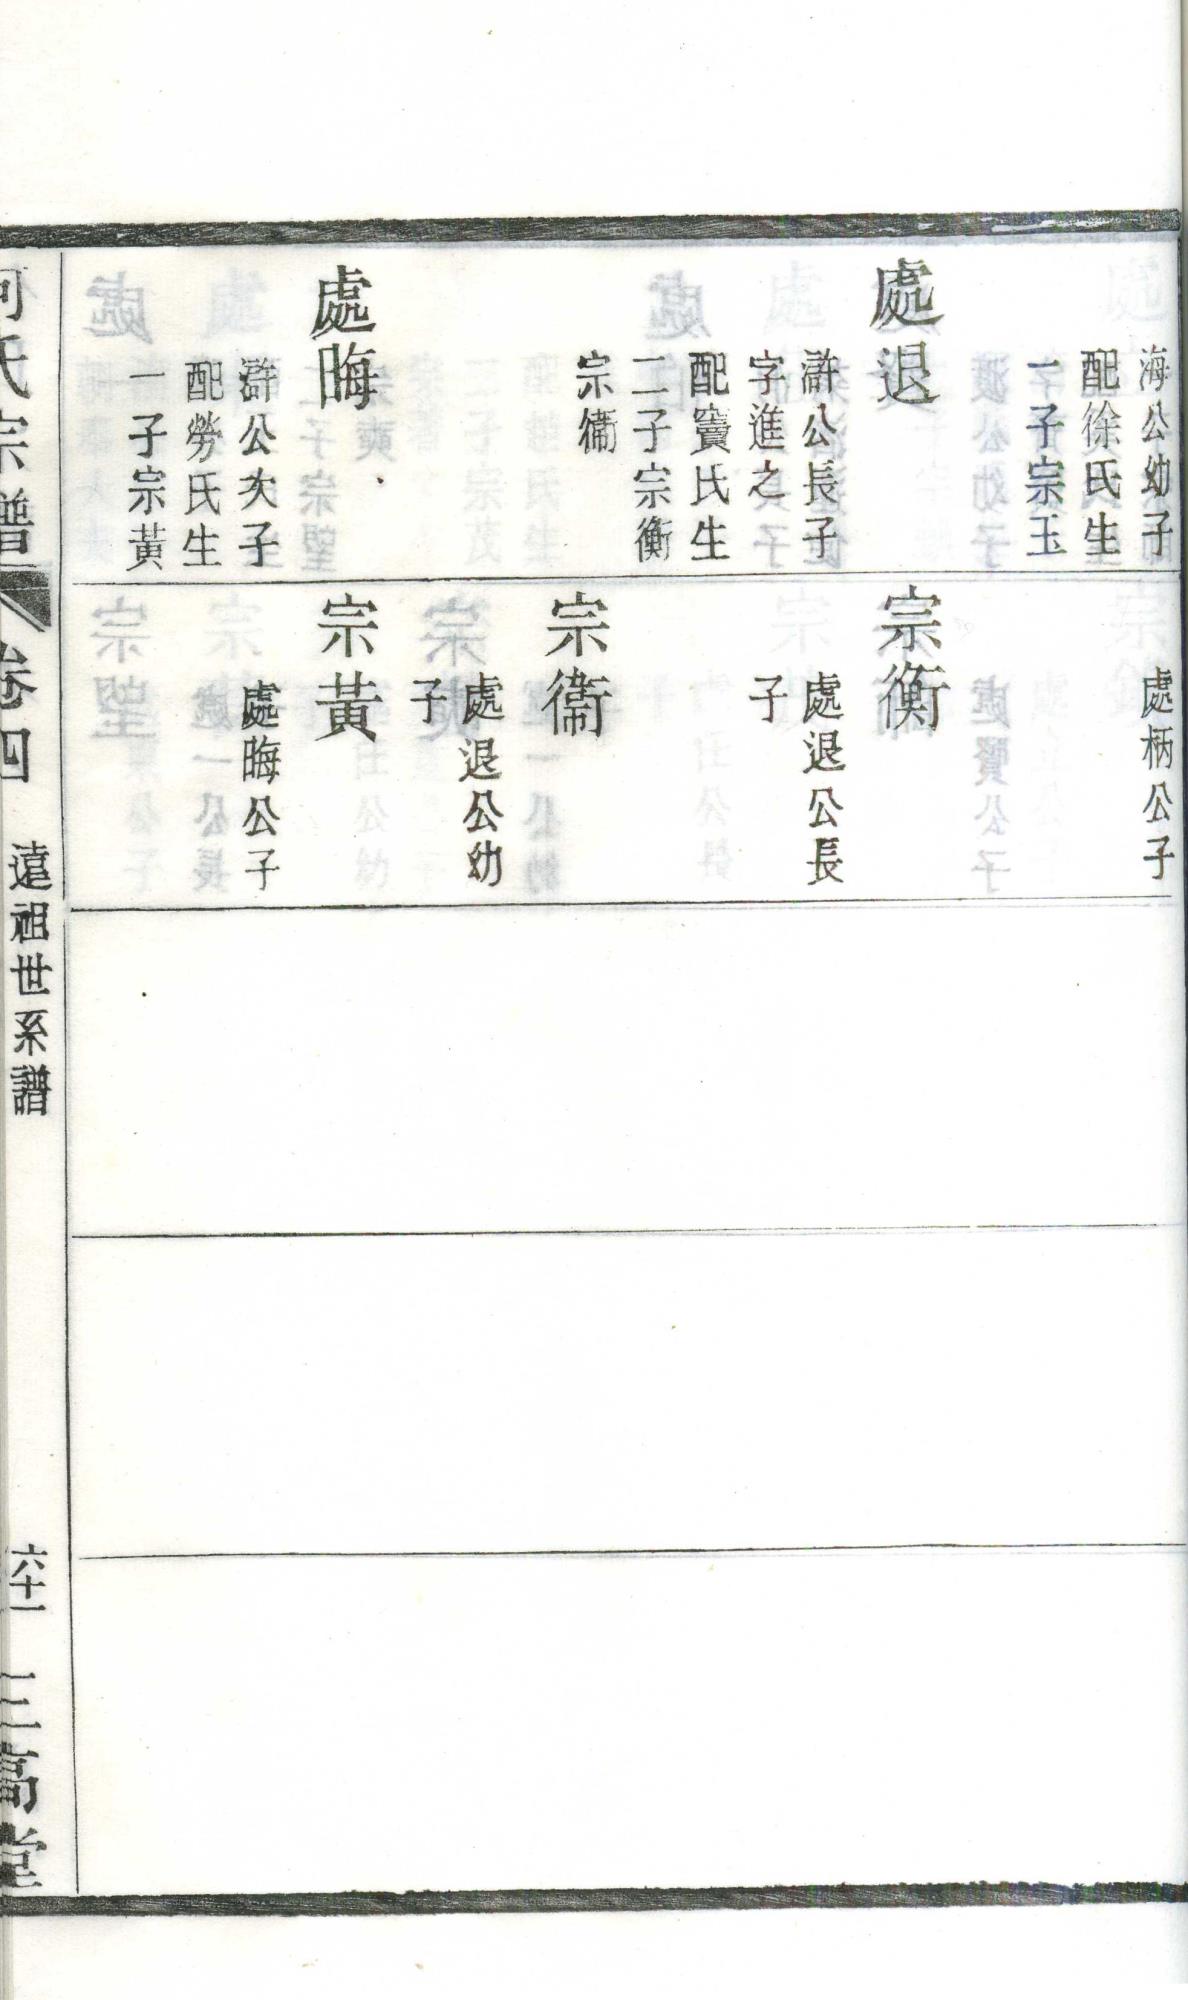 海公幼子
配徐氏生
一子宗玉
處退
滸公長子
字進之
配竇氏生
二子宗衡
宗衞
處晦
滸公次子
配勞氏生
一子宗黃
處柄公子
宗衡
處退公長
子
宗衞
處退公幼
子
宗黃
處晦公子
氏宗譜
卷四
遠祖世系譜
六十一
三高堂